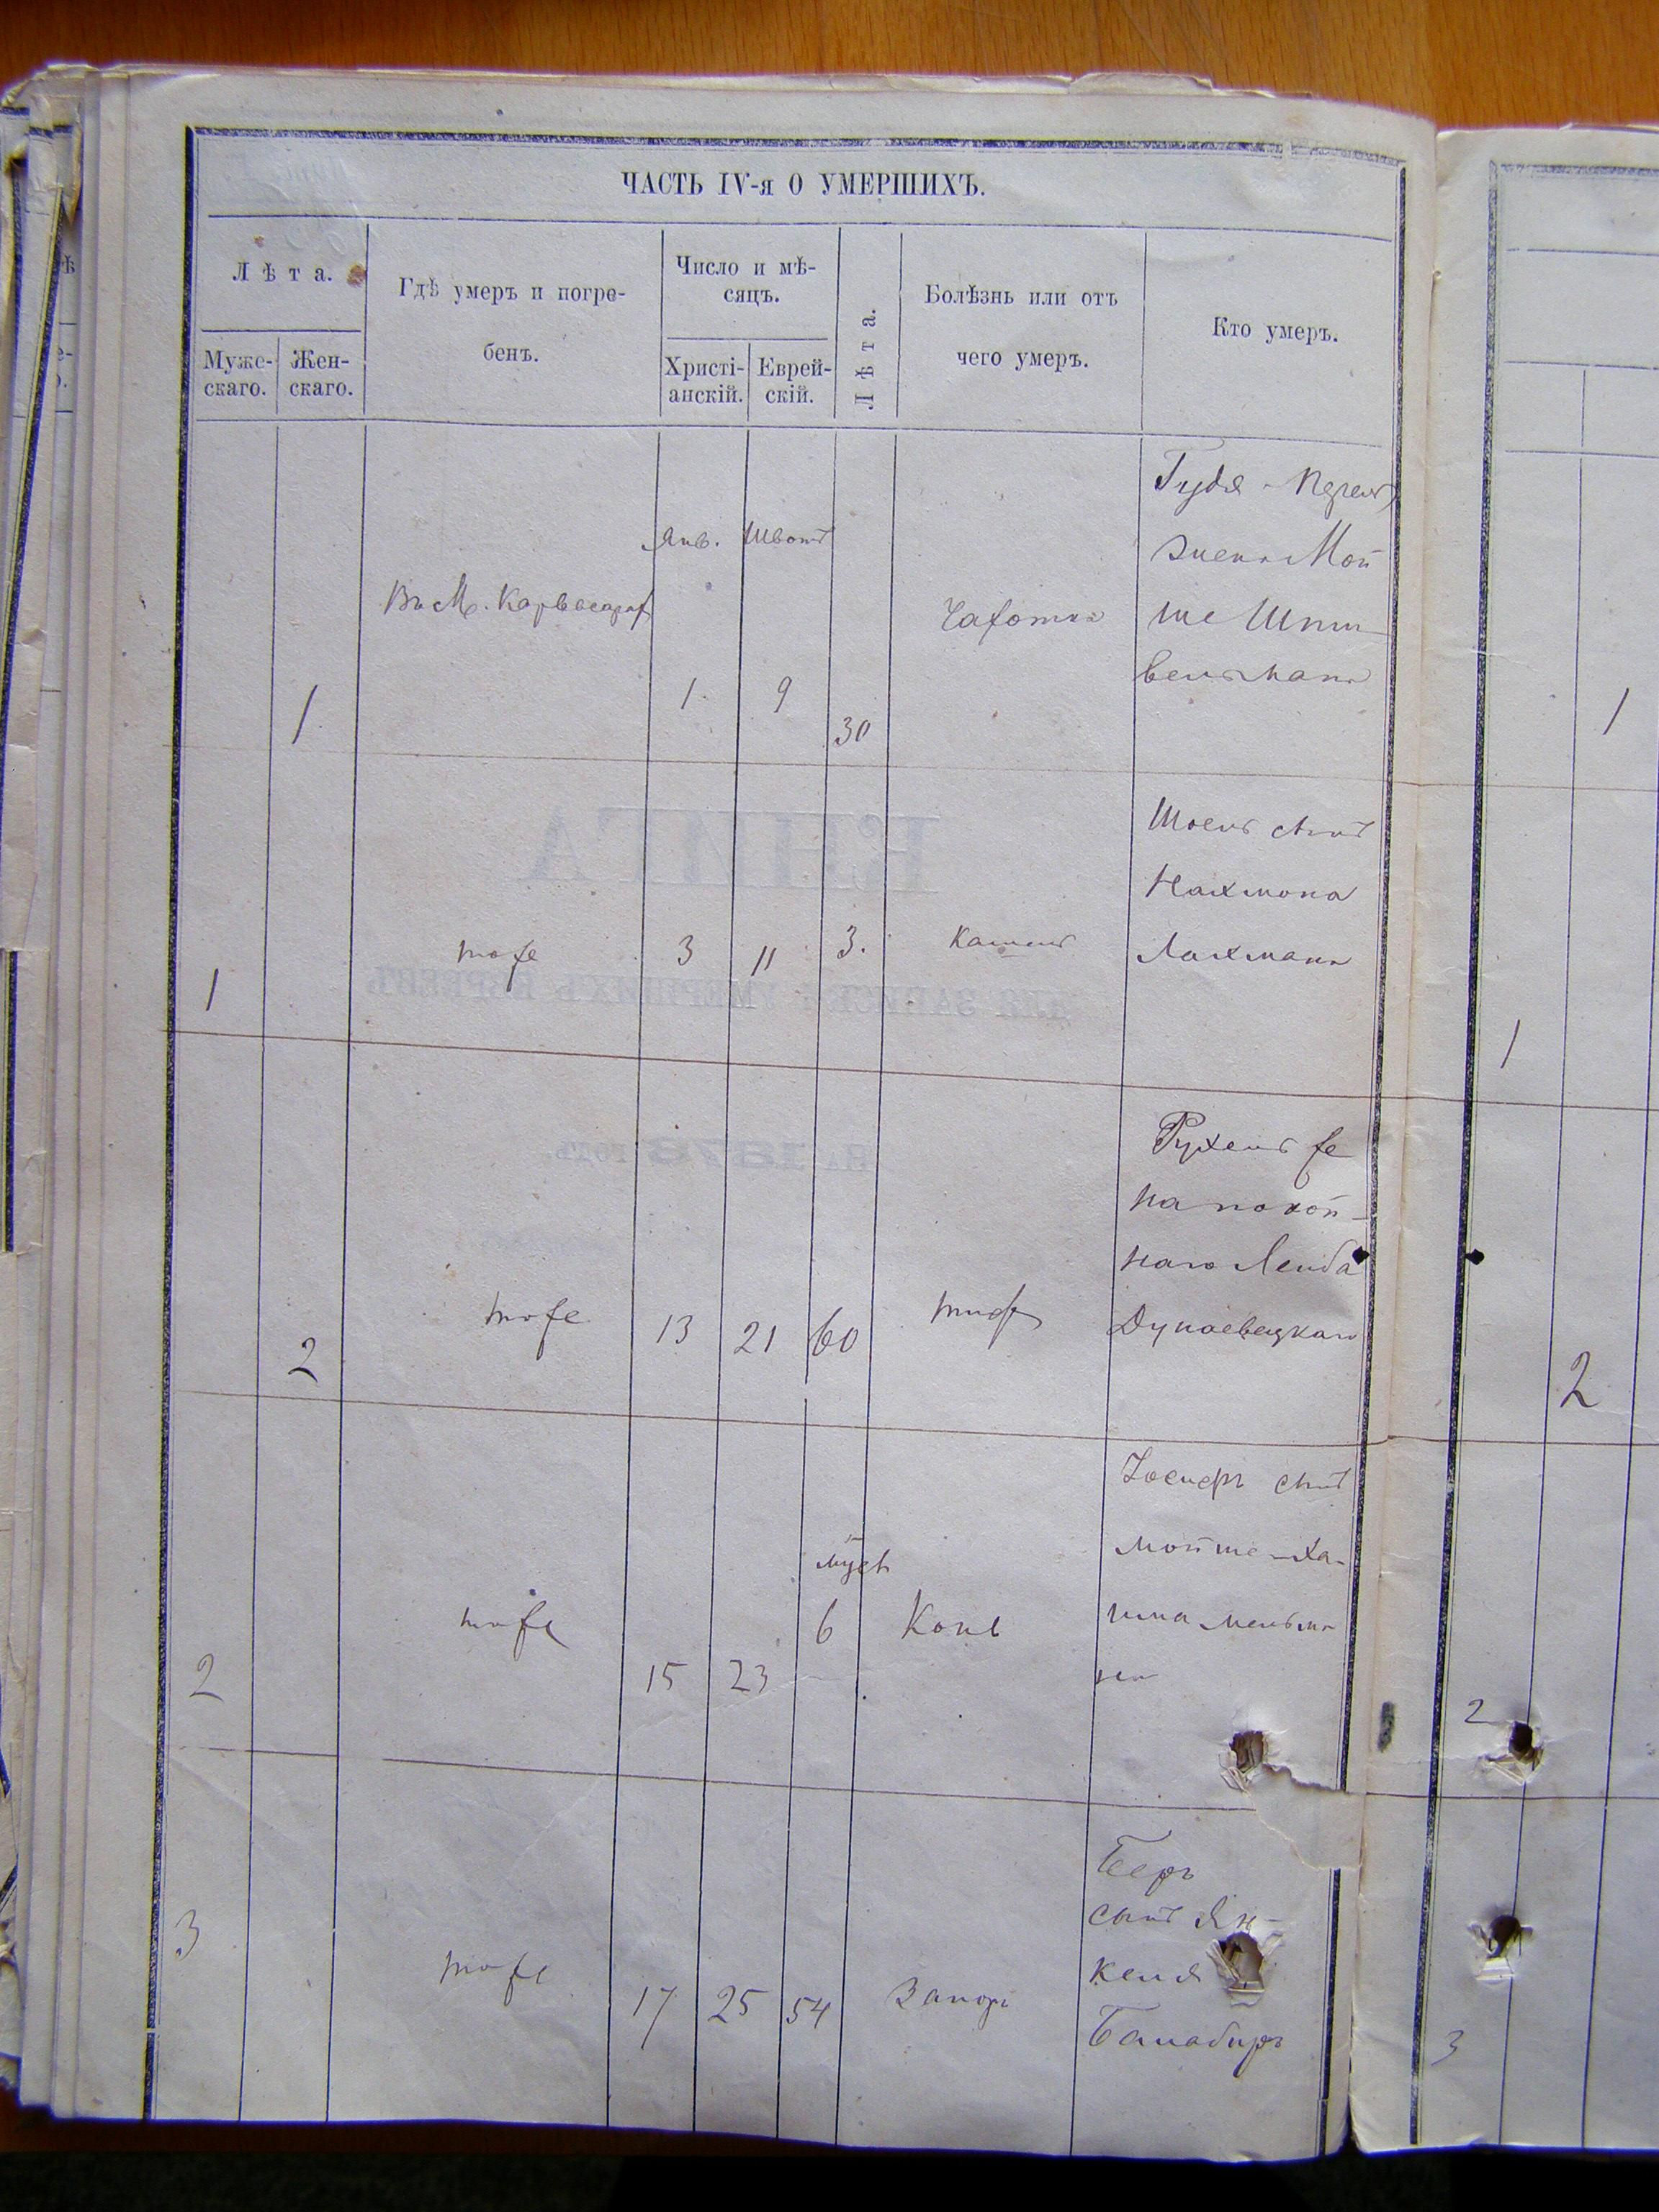 ЧАСТЬ IV-я О УМЕРШИХЪ.
Лѣта.
Муже-
скаго.
Жен-
скаго.
Гдѣ умеръ и погре-
бенъ.
Число и мѣ-
сяцъ.
Христі-
анскій.
Еврей-
скій.
Лѣта.
Болѣзнь или отъ
чего умеръ.
Кто умеръ.
1
Въ М. Карвасарах
Янв.
1
Шватъ
9
30
Чахотка
Гудя - Перель
жена Мой
ше Шпи
вельмана
1
тоже
3
11
3.
Кашель
сынъ
Нахмана
Лахмана
2
тоже
13
21
60
тиф
Рухель же
на покой-
наго Лейба
Дунаевецкаго
2
тоже
15
23
6
Конв
Іосифъ сынъ
Мойше-Ха-
има Мельма
на
3
тоже
17
25
54
Запоръ
Беръ
сынъ Ян-
келя
Балабиръ
1
1
2
2
3
КНИГА
ДЛЯ ЗАПИСКИ УМЕРШИХЪ ЕВРЕЕВЪ
На 1878 годъ.